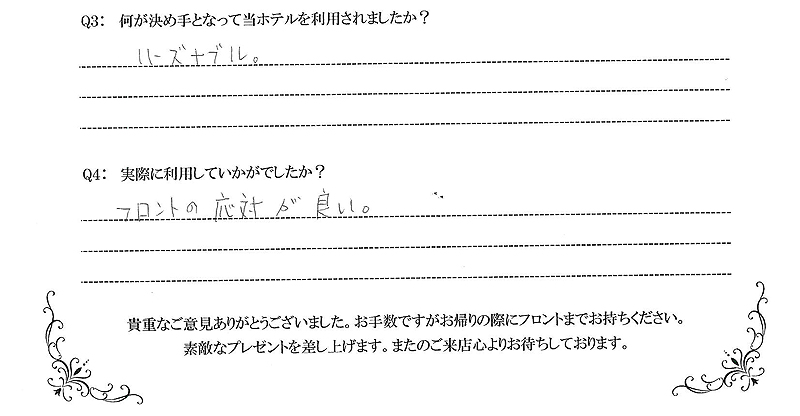 Q3： 何が決め手となって当ホテルを利用されましたか？
リーズナブル。
Q4： 実際に利用していかがでしたか？
フロントの応対が良い。
貴重なご意見ありがとうございました。お手数ですがお帰りの際にフロントまでお持ちください。
素敵なプレゼントを差し上げます。またのご来店心よりお待ちしております。